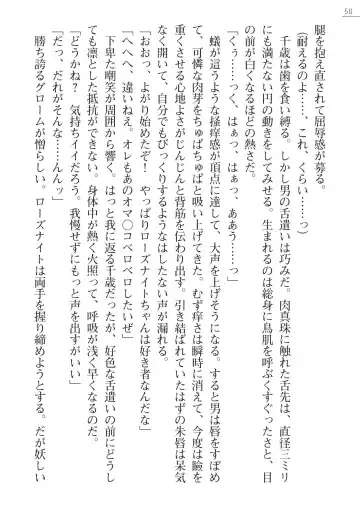 50
腿を抱え直されて屈辱感が募る。
(耐えるのよ……これ、くらい……っ)
千歳は歯を食い縛る。しかし男の舌遣いは巧みだ。肉真珠に触れた舌先は、直径三ミリ
にも満たない円の動きをしてみせる。生まれるのは総身に鳥肌を呼ぶくすぐったさと、目
の前が白くなるほどの熱さだ。
「くぅ……っく、はぁっ、はぁっ、ああう……っ」
蟻が這うような掻痒感が頂点に達して、大声を上げそうになる。すると男は唇をすぼめ
て、可憐な肉芽をちゅぱちゅぱと吸い上げてきた。むず痒さは瞬時に消えて、今度は瞼を
重くさせる心地よさがじんじんと背筋を伝わり出す。引き結ばれていたはずの朱唇は呆気
なく開いて、自分でもびっくりするようなはしたない声が漏れる。
「おおっ、よがり始めたぞ! やっぱりローズナイトちゃんは好き者なんだな」
「へへへ、違いねえ。オレもあのオマ〇コベロベロしたいぜ」
下卑た嘲笑が周囲から響く。はっと我に返る千歳だったが、好色な舌遣いの前にどうし
ても凛とした抵抗ができない。身体中が熱く火照って、呼吸が浅く早くなるのだ。
「どうかね? 気持ちイイだろう。我慢せずにもっと声を出すがいい」
「だっ、だれがそんな……んんッ」
勝ち誇るグロームが憎らしい。ローズナイトは両手を握り締めようとする。だが妖しい